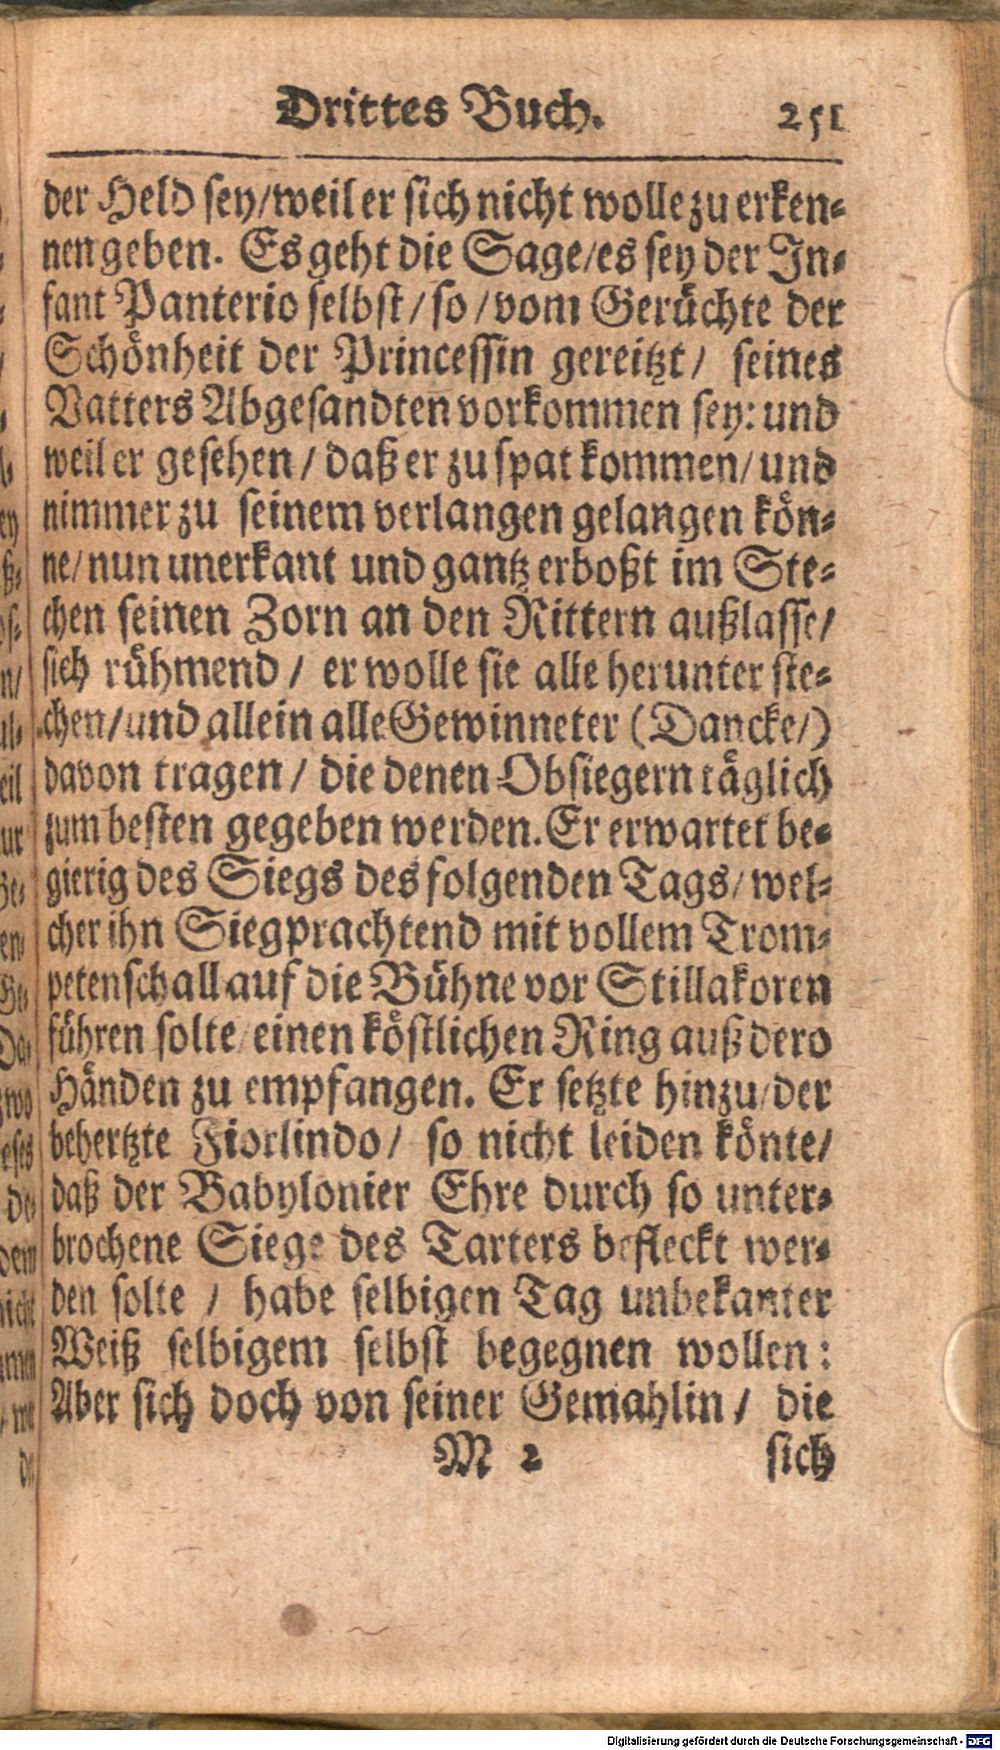 Drittes Buch. 251
der Held sey/weil er sich nicht wolle zu erken-
nen geben. Es geht die Sage/es sey der In-
fant Panterio selbst/so/vom Gerüchte der
Schönheit der Princessin gereitzt/ seines
Vatters Abgesandten vorkommen sey: und
weil er gesehen/daß er zu spat kommen/und
nimmer zu seinem verlangen gelangen kön-
ne/nun unerkant und gantz erboßt im Ste-
chen seinen Zorn an den Rittern außlasse/
sich rühmend/ er wolle sie alle herunter ste-
chen/und allein alle Gewinneter (Dancke/)
davon tragen/ die denen Obsiegern täglich
zum besten gegeben werden. Er erwartet be-
gierig des Siegs des folgenden Tags/wel-
cher ihn Siegprachtend mit vollem Trom-
petenschall auf die Bühne vor Stillakoren
führen solte/einen köstlichen Ring auß dero
Händen zu empfangen. Er setzte hinzu/der
behertzte Fiorlindo/ so nicht leiden könte/
daß der Babylonier Ehre durch so unter-
brochene Siege des Tarters befleckt wer-
den solte/ habe selbigen Tag unbekanter
Weiß selbigem selbst begegnen wollen:
Aber sich doch von seiner Gemahlin/ die
M 2 sich
Digitalisierung gefördert durch die Deutsche Forschungsgemeinschaft - DFG